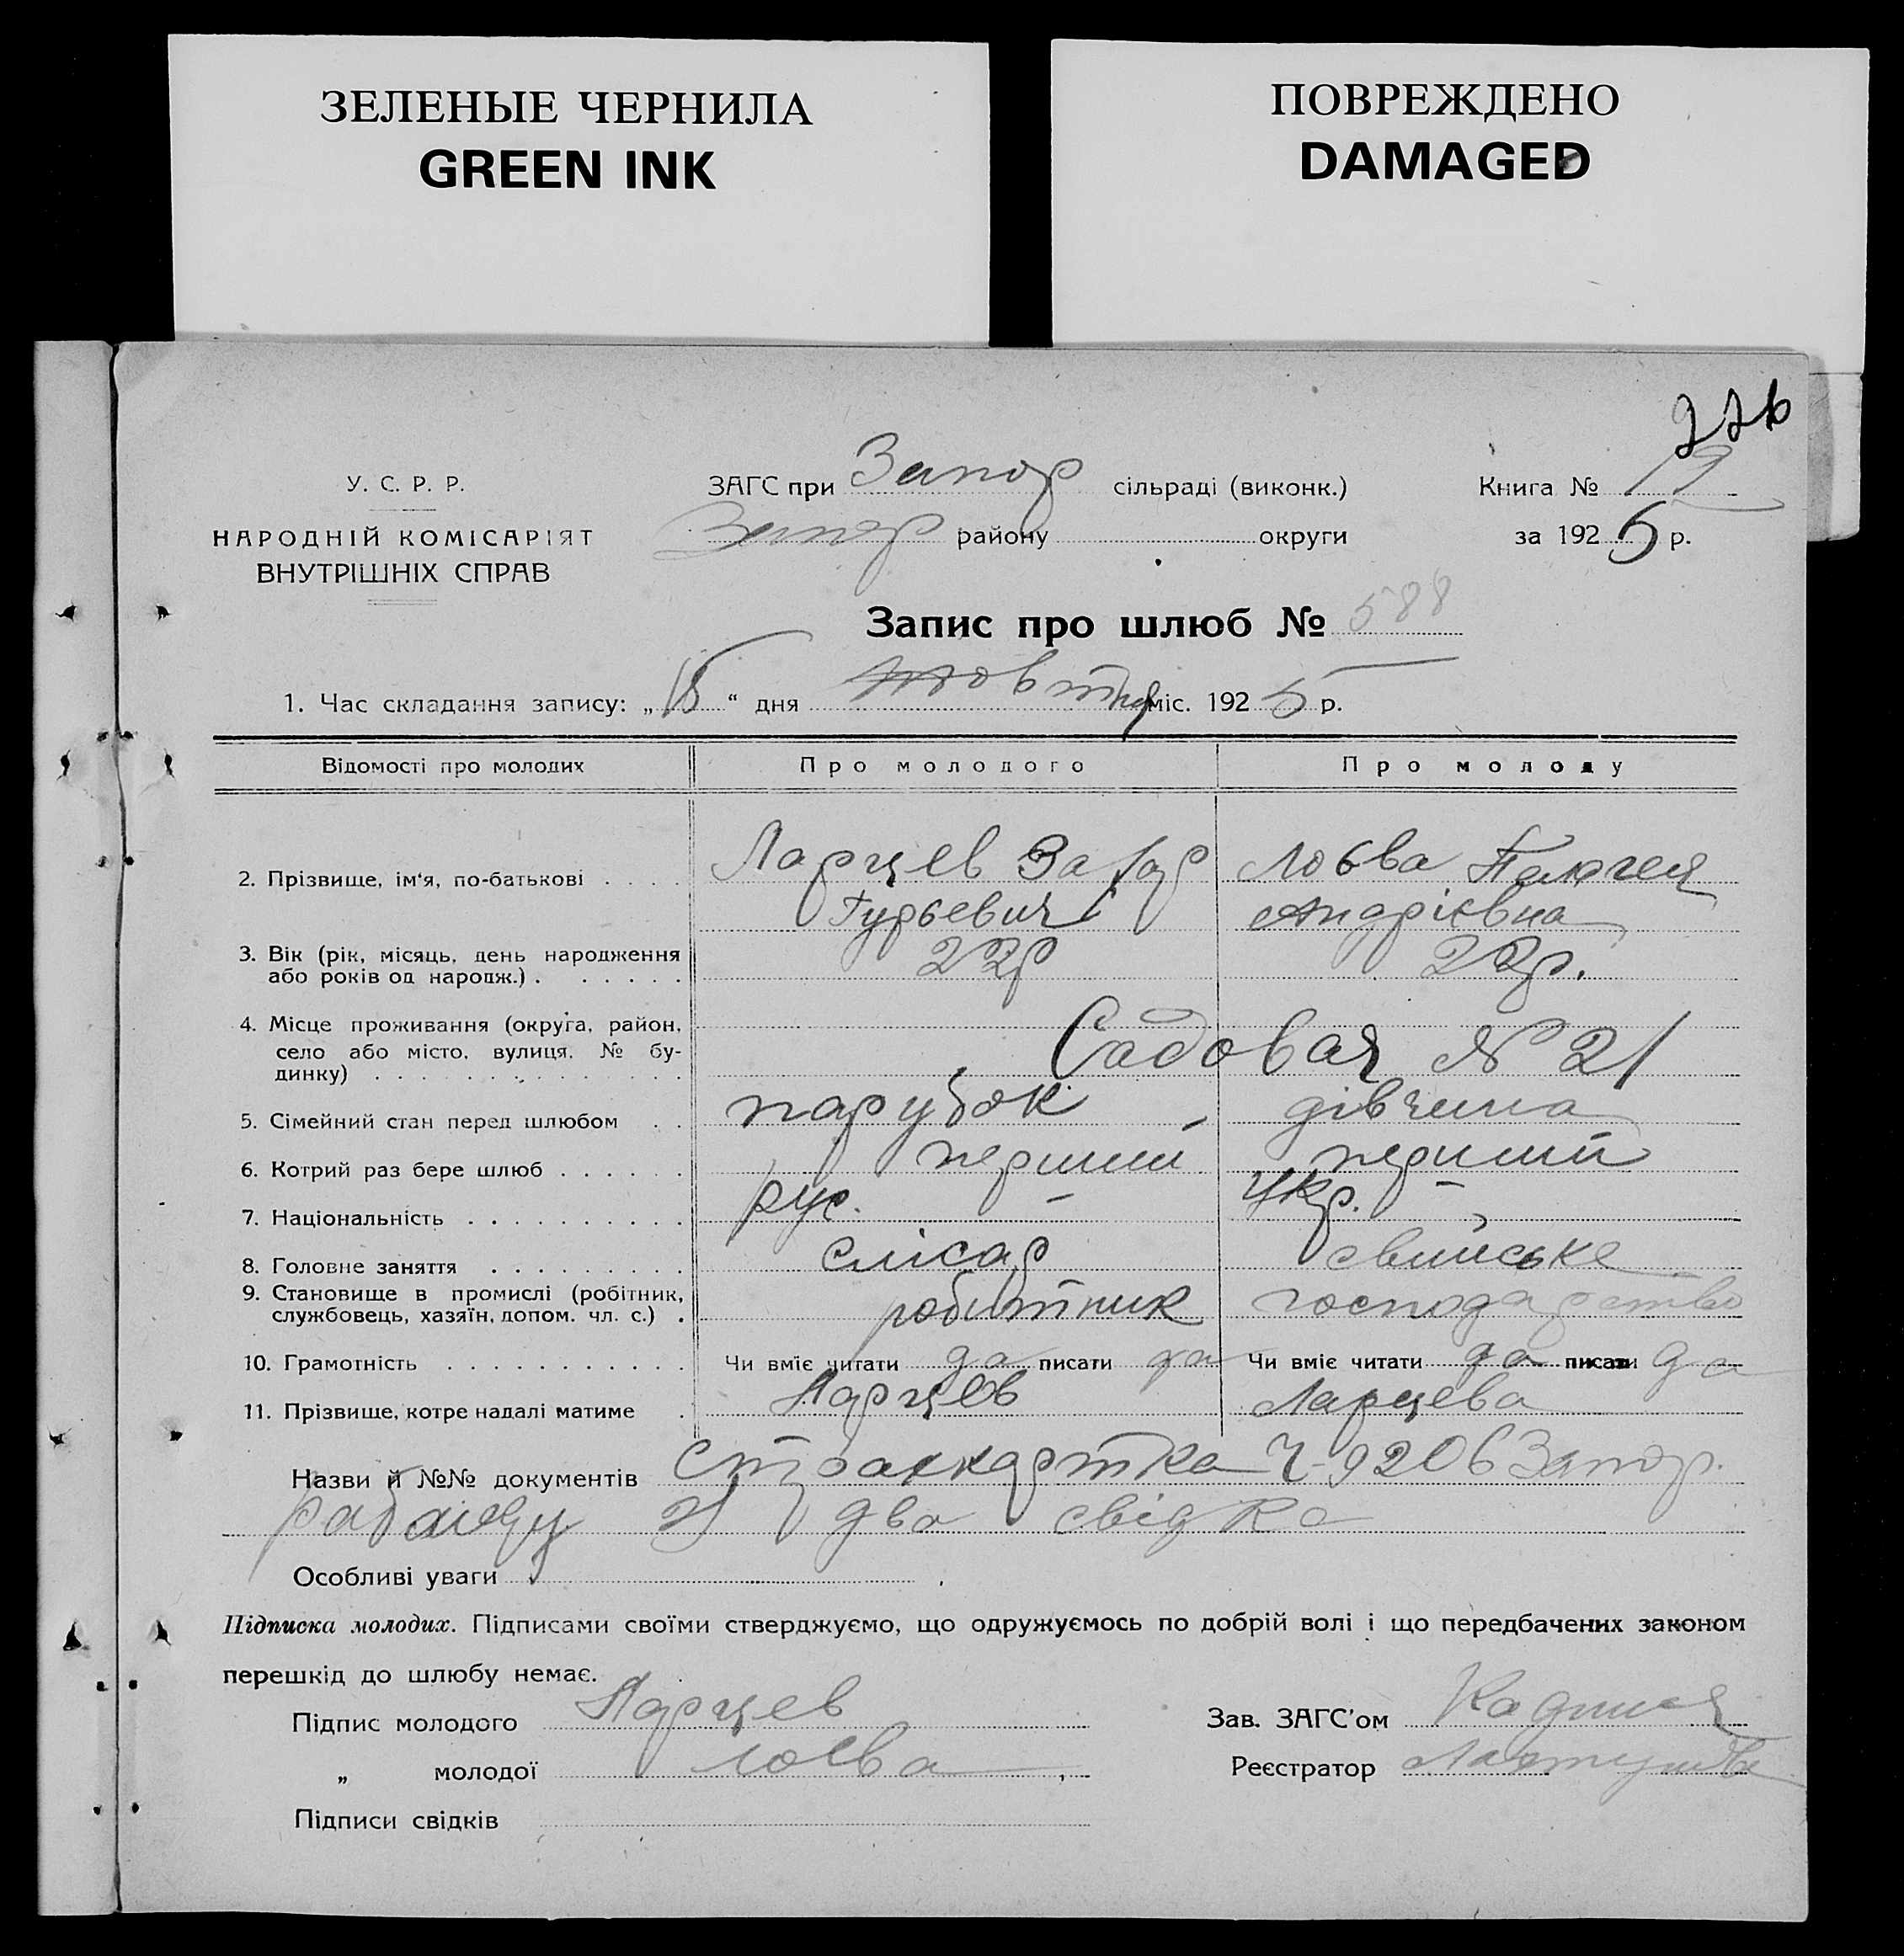 ЗЕЛЕНЫЕ ЧЕРНИЛА
GREEN INK
ПОВРЕЖДЕНО
DAMAGED
226
У. С. Р. Р.
НАРОДНІЙ КОМІСАРІЯТ
ВНУТРІШНІХ СПРАВ
ЗАГС при Запор сільраді (виконк.)
Запор району округи
Книга № 19
за 1925 р.
Запис про шлюб № 588
1. Час складання запису: „18“ дня Жовтня міс. 1925 р.
Відомості про молодих Про молодого Про молоду
2. Прізвище, ім'я, по-батькові Ларцев Захар Лоєва Пелагея
Гурьевич Андріївна
3. Вік (рік, місяць, день народження
або років од народж.) 22р 22р.
4. Місце проживання (округа, район,
село або місто, вулиця, № бу-
динку) Садовая № 21
5. Сімейний стан перед шлюбом парубок дівчина
6. Котрий раз бере шлюб перший перший
7. Національність рус. Укр.
8. Головне заняття слісар
9. Становище в промислі (робітник,
службовець, хазяїн, допом. чл. с.) робітник господарство
10. Грамотність Чи вміє читати да писати да Чи вміє читати да писати да
11. Прізвище, котре надалі матиме Ларцев Ларцева
Назви й №№ документів Страхкартка Ч-9206 Запор.
два свідка
Особливі уваги
Підписка молодих. Підписами своїми стверджуємо, що одружуємось по добрій волі і що передбачених законом
перешкід до шлюбу немає.
Підпис молодого Ларцев
„ молодої Лоєва
Підписи свідків
Зав. ЗАГС'ом
Реєстратор